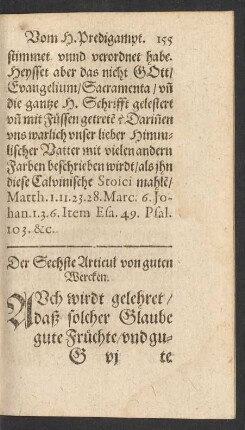 Vom H. Predigampt. 155
stimmet vnnd verordnet habe.
Heysset aber das nicht GOtt/
Evangelium/ Sacramenta/ vñ
die gantze H. Schrifft gelestert
vñ mit Füssen getretẽ? Dariñen
vns warlich vnser lieber Himm-
lischer Vatter mit vielen andern
Farben beschrieben wirdt/ als jhn
diese Calvinische Stoici mahlẽ/
Matth. 1. 11. 23. 28. Marc. 6. Jo-
han. 1. 3. 6. Item Esa. 49. Psal.
103. &c.
Der Sechste Articul von guten
Wercken.
AVch wirdt gelehret/
daß solcher Glaube
gute Früchte/ vnd gu-
G vj te